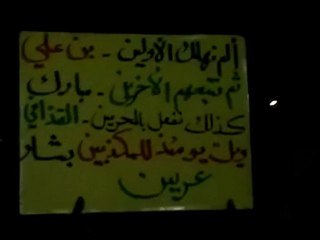 ألم نهلك الأولين - بن علي
ثم نتبعهم الآخرين - مبارك
كذلك نفعل بالمجرمين - القذافي
ويل يومئذ للمكذبين بشار
عربين